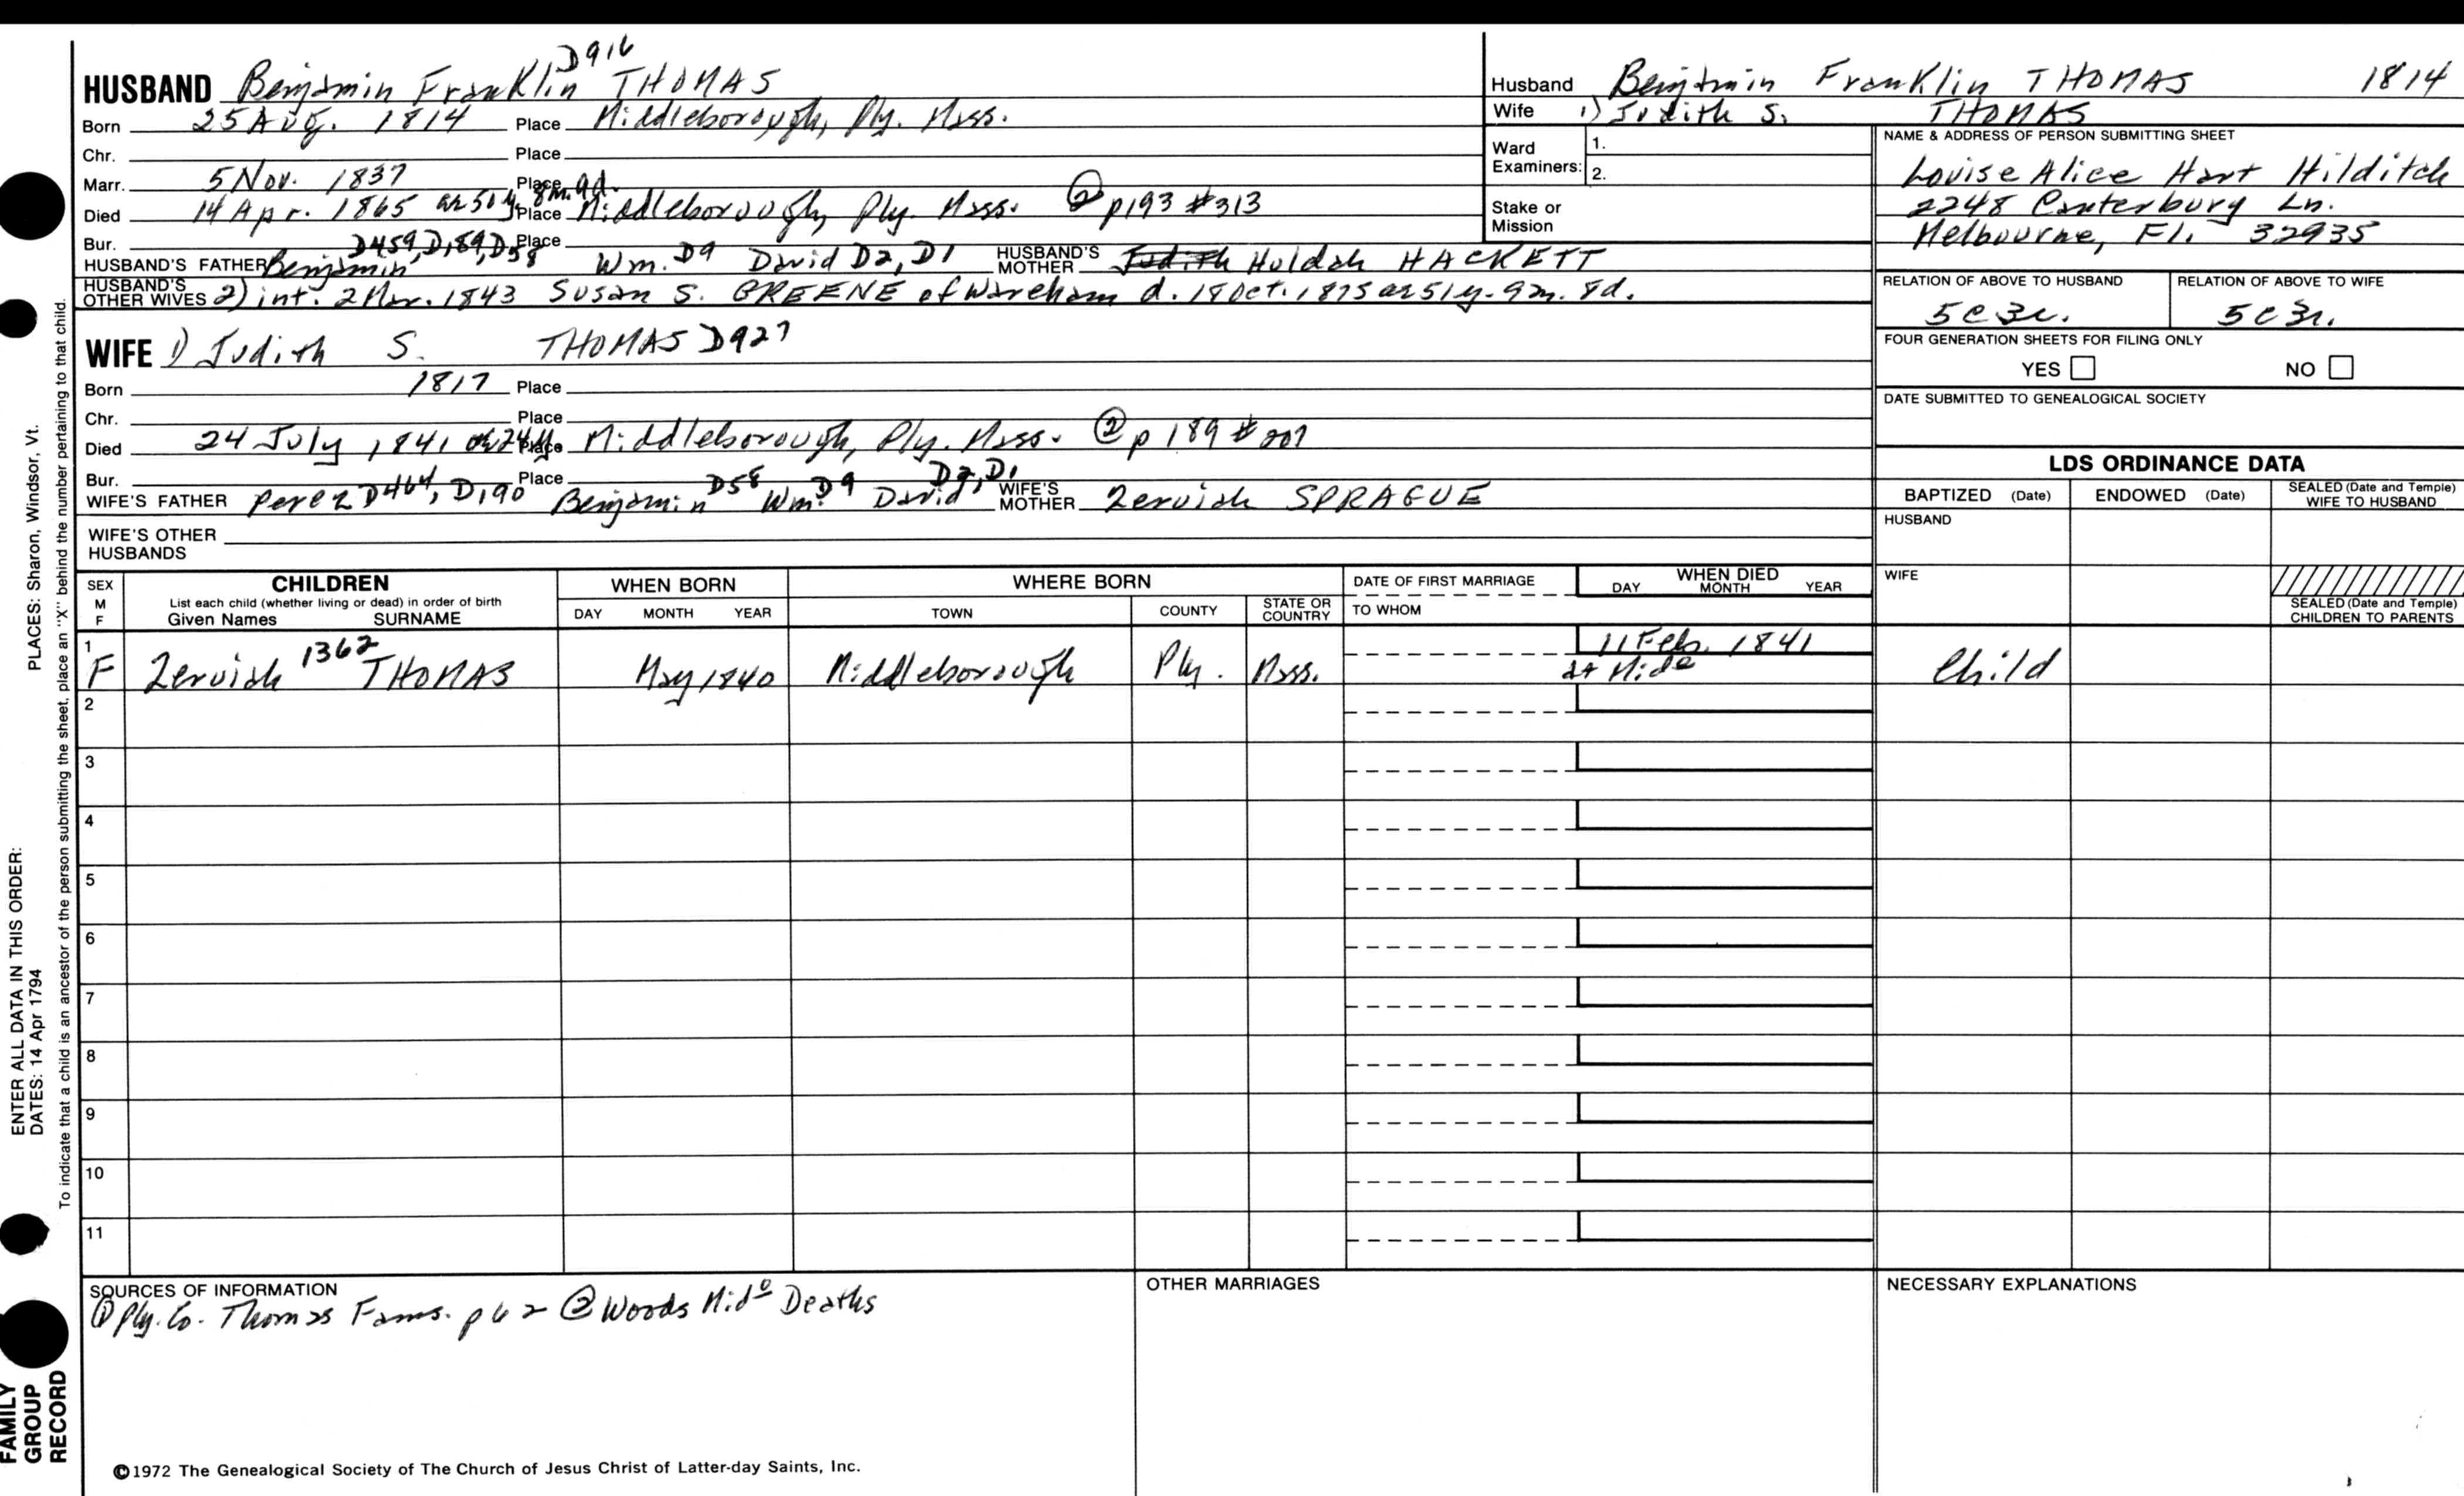 D916
HUSBAND Benjamin Franklin THOMAS
Born 25 Aug. 1814 Place Middleborough, Ply. Mass.
Chr. Place
Marr. 5 Nov. 1837 Place
Died 14 Apr. 1865 ae 50 y. 8m. 9d. Place Middleborough, Ply. Mass. ② p193 #313
Bur. Place
HUSBAND'S FATHER Benjamin D459, D189, D58 Wm. D9 David D2, D1 HUSBAND'S MOTHER Huldah HACKETT
HUSBAND'S OTHER WIVES 2) int. 2 Mar. 1843 Susan S. GREENE of Wareham d. 18 Oct. 1875 ae 51y. 9m. 8d.
WIFE 1) Judith S. THOMAS D927
Born 1817 Place
Chr. Place
Died 24 July 1841 ae 24y Place Middleborough, Ply. Mass. ② p 189 # 207
Bur. Place
WIFE'S FATHER Perez D464, D190 Benjamin D58 Wm. D9 David D2, D1 WIFE'S MOTHER Zeruiah SPRAGUE
WIFE'S OTHER HUSBANDS
Husband Benjamin Franklin THOMAS 1814
Wife 1) Judith S. THOMAS
Ward Examiners: 1.
2.
Stake or Mission
NAME & ADDRESS OF PERSON SUBMITTING SHEET
Louise Alice Hart Hilditch
2248 Canterbury Ln.
Melbourne, Fl. 32935
RELATION OF ABOVE TO HUSBAND RELATION OF ABOVE TO WIFE
5c3r. 5c3r.
FOUR GENERATION SHEETS FOR FILING ONLY
YES NO
DATE SUBMITTED TO GENEALOGICAL SOCIETY
LDS ORDINANCE DATA
BAPTIZED (Date) ENDOWED (Date) SEALED (Date and Temple) WIFE TO HUSBAND
HUSBAND
WIFE
SEALED (Date and Temple) CHILDREN TO PARENTS
SEX M F
CHILDREN
List each child (whether living or dead) in order of birth
Given Names SURNAME
WHEN BORN
DAY MONTH YEAR
WHERE BORN
TOWN COUNTY STATE OR COUNTRY
DATE OF FIRST MARRIAGE
TO WHOM
WHEN DIED
DAY MONTH YEAR
1 F Zeruiah 1362 THOMAS May 1840 Middleborough Ply. Mass. 11 Feb. 1841 at Mido Child
2
3
4
5
6
7
8
9
10
11
SOURCES OF INFORMATION
① Ply. Co. Thomas Fams. p 62 ② Woods Mido Deaths
OTHER MARRIAGES
NECESSARY EXPLANATIONS
©1972 The Genealogical Society of The Church of Jesus Christ of Latter-day Saints, Inc.
PLACES: Sharon, Windsor, Vt.
ENTER ALL DATA IN THIS ORDER:
DATES: 14 Apr 1794
To indicate that a child is an ancestor of the person submitting the sheet, place an "X" behind the number pertaining to that child.
FAMILY
GROUP
RECORD